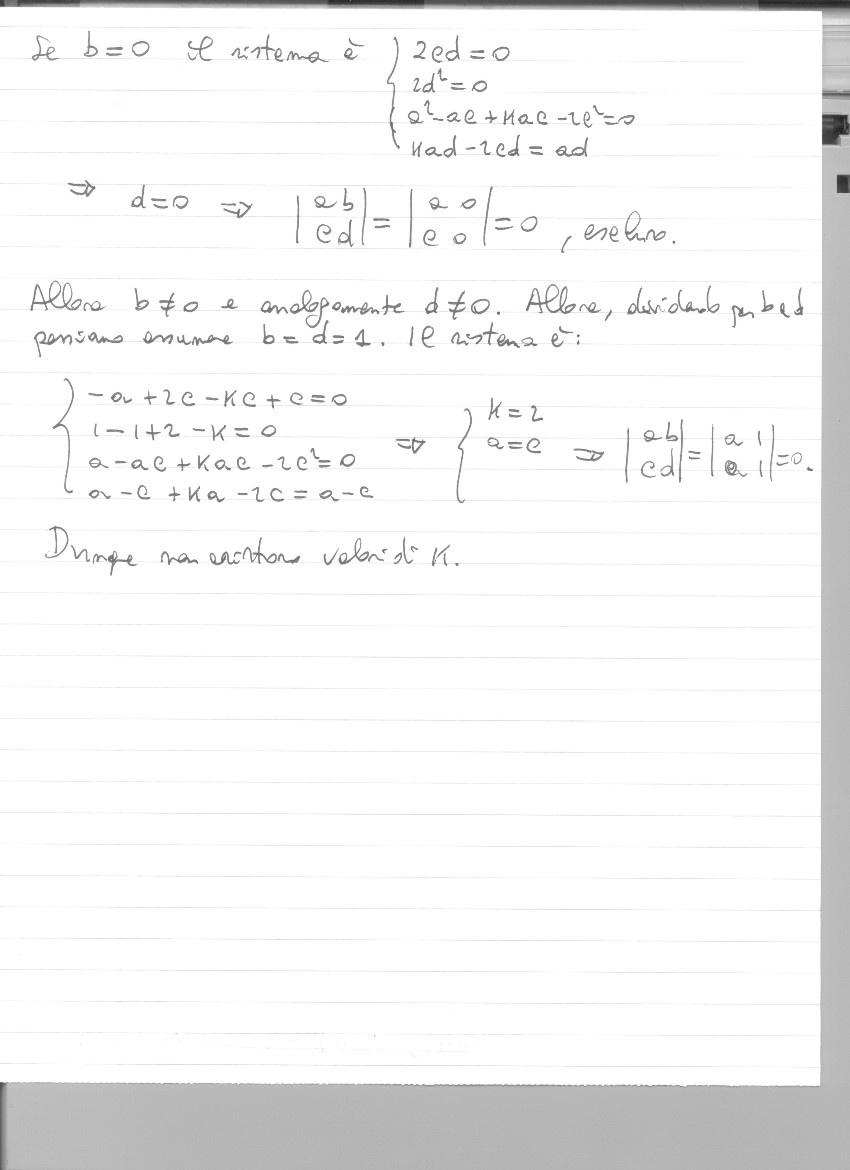 Se b=0 il sistema è { 2cd=0
2d²=0
a²-ac+Kac-2c²=0
Kad-2cd=ad
⇒ d=0 ⇒ |a b; c d| = |a 0; c 0| = 0, escluso.
Allora b≠0 e analogamente d≠0. Allora, dividendo per b e d
possiamo assumere b=d=1. Il sistema è:
{ -a+2c-Kc+c=0
1-1+2-K=0
a-ac+Kac-2c²=0
a-c+Ka-2c=a-c
⇒ { K=2
a=c
⇒ |a b; c d| = |a 1; a 1| =0.
Dunque non esistono valori di K.